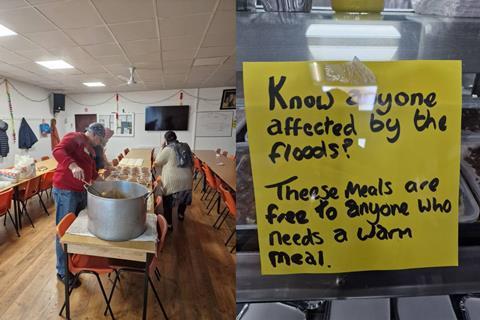 Know anyone
affected by the
floods?
Theese Meals are
free to anyone who
needs a warm
meal.